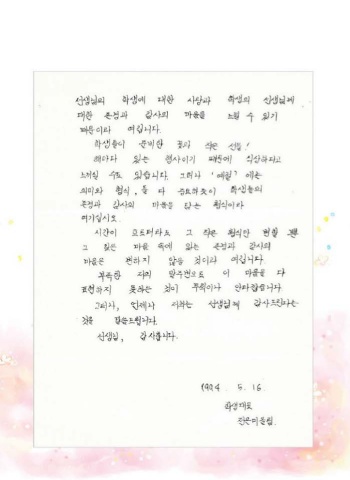 선생님의 학생에 대한 사랑과 학생의 선생님께
대한 존경과 감사의 마음을 느낄 수 있기
때문이라 여깁니다.
학생들이 준비한 꽃과 작은 선물!
해마다 있는 행사이기 때문에 식상하다고
느끼실 수도 있습니다. 그러나 '예절' 에는
의미와 형식, 둘 다 중요하듯이 학생들의
존경과 감사의 마음을 담는 형식이라
여기십시오.
시간이 흐르더라도 그 작은 형식만 변할 뿐
그 깊은 마음 속에 있는 존경과 감사의
마음은 변하지 않을 것이라 여깁니다.
부족한 저의 말주변으로 이 마음을 다
표현하지 못하는 것이 무척이나 안타깝습니다.
그러나, 언제나 저희는 선생님께 감사드린다는
것을 말씀드립니다.
선생님, 감사합니다.
1994. 5. 16.
학생대표
올림.